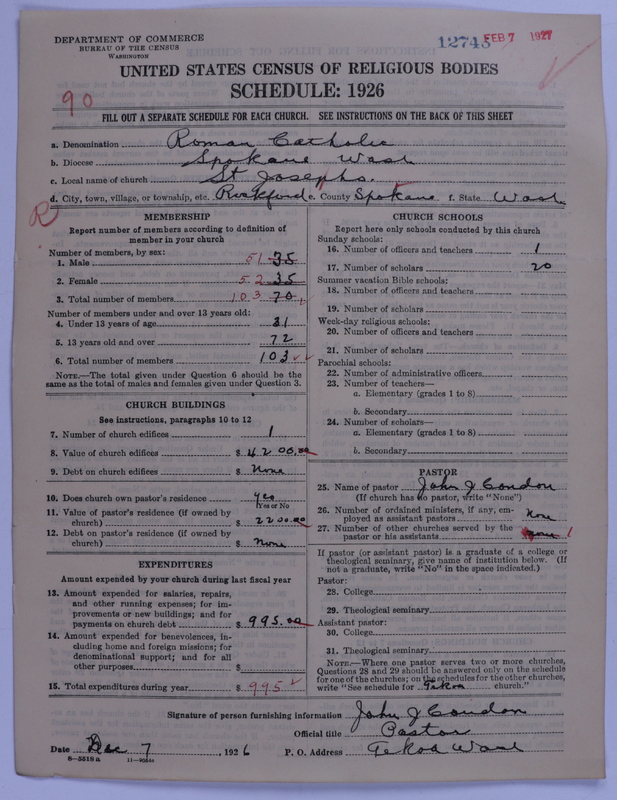 DEPARTMENT OF COMMERCE
BUREAU OF THE CENSUS
WASHINGTON
12745 FEB 7 1927
UNITED STATES CENSUS OF RELIGIOUS BODIES
SCHEDULE: 1926
90
FILL OUT A SEPARATE SCHEDULE FOR EACH CHURCH. SEE INSTRUCTIONS ON THE BACK OF THIS SHEET
a. Denomination Roman Catholic
b. Diocese Spokane Wash
c. Local name of church St Josephs.
d. City, town, village, or township, etc. Rockford e. County Spokane f. State Wash
R
MEMBERSHIP
Report number of members according to definition of
member in your church
Number of members, by sex:
1. Male 51 35
2. Female 52 35
3. Total number of members 103 70
Number of members under and over 13 years old:
4. Under 13 years of age 31
5. 13 years old and over 72
6. Total number of members 103
NOTE.—The total given under Question 6 should be the
same as the total of males and females given under Question 3.
CHURCH BUILDINGS
See instructions, paragraphs 10 to 12
7. Number of church edifices 1
8. Value of church edifices $ 4200.00
9. Debt on church edifices $ None
10. Does church own pastor's residence yes
(Yes or No
11. Value of pastor's residence (if owned by
church) $ 2200.00
12. Debt on pastor's residence (if owned by
church) $ None
EXPENDITURES
Amount expended by your church during last fiscal year
13. Amount expended for salaries, repairs,
and other running expenses; for im-
provements or new buildings; and for
payments on church debt $ 995.00
14. Amount expended for benevolences, in-
cluding home and foreign missions; for
denominational support; and for all
other purposes $
15. Total expenditures during year $ 995
CHURCH SCHOOLS
Report here only schools conducted by this church
Sunday schools:
16. Number of officers and teachers 1
17. Number of scholars 20
Summer vacation Bible schools:
18. Number of officers and teachers
19. Number of scholars
Week-day religious schools:
20. Number of officers and teachers
21. Number of scholars
Parochial schools:
22. Number of administrative officers
23. Number of teachers—
a. Elementary (grades 1 to 8)
b. Secondary
24. Number of scholars—
a. Elementary (grades 1 to 8)
b. Secondary
PASTOR
25. Name of pastor John J Condon
(If church has no pastor, write "None")
26. Number of ordained ministers, if any, em-
ployed as assistant pastors None
27. Number of other churches served by the
pastor or his assistants none 1
If pastor (or assistant pastor) is a graduate of a college or
theological seminary, give name of institution below. (If
not a graduate, write "No" in the space indicated.)
Pastor:
28. College
29. Theological seminary
Assistant pastor:
30. College
31. Theological seminary
NOTE.—Where one pastor serves two or more churches,
Questions 28 and 29 should be answered only on the schedule
for one of the churches; on the schedules for the other churches,
write "See schedule for Tekoa church."
Signature of person furnishing information John J Condon
Official title Pastor
Date Dec 7, 1926 P. O. Address Tekoa Wash
8—5518 a